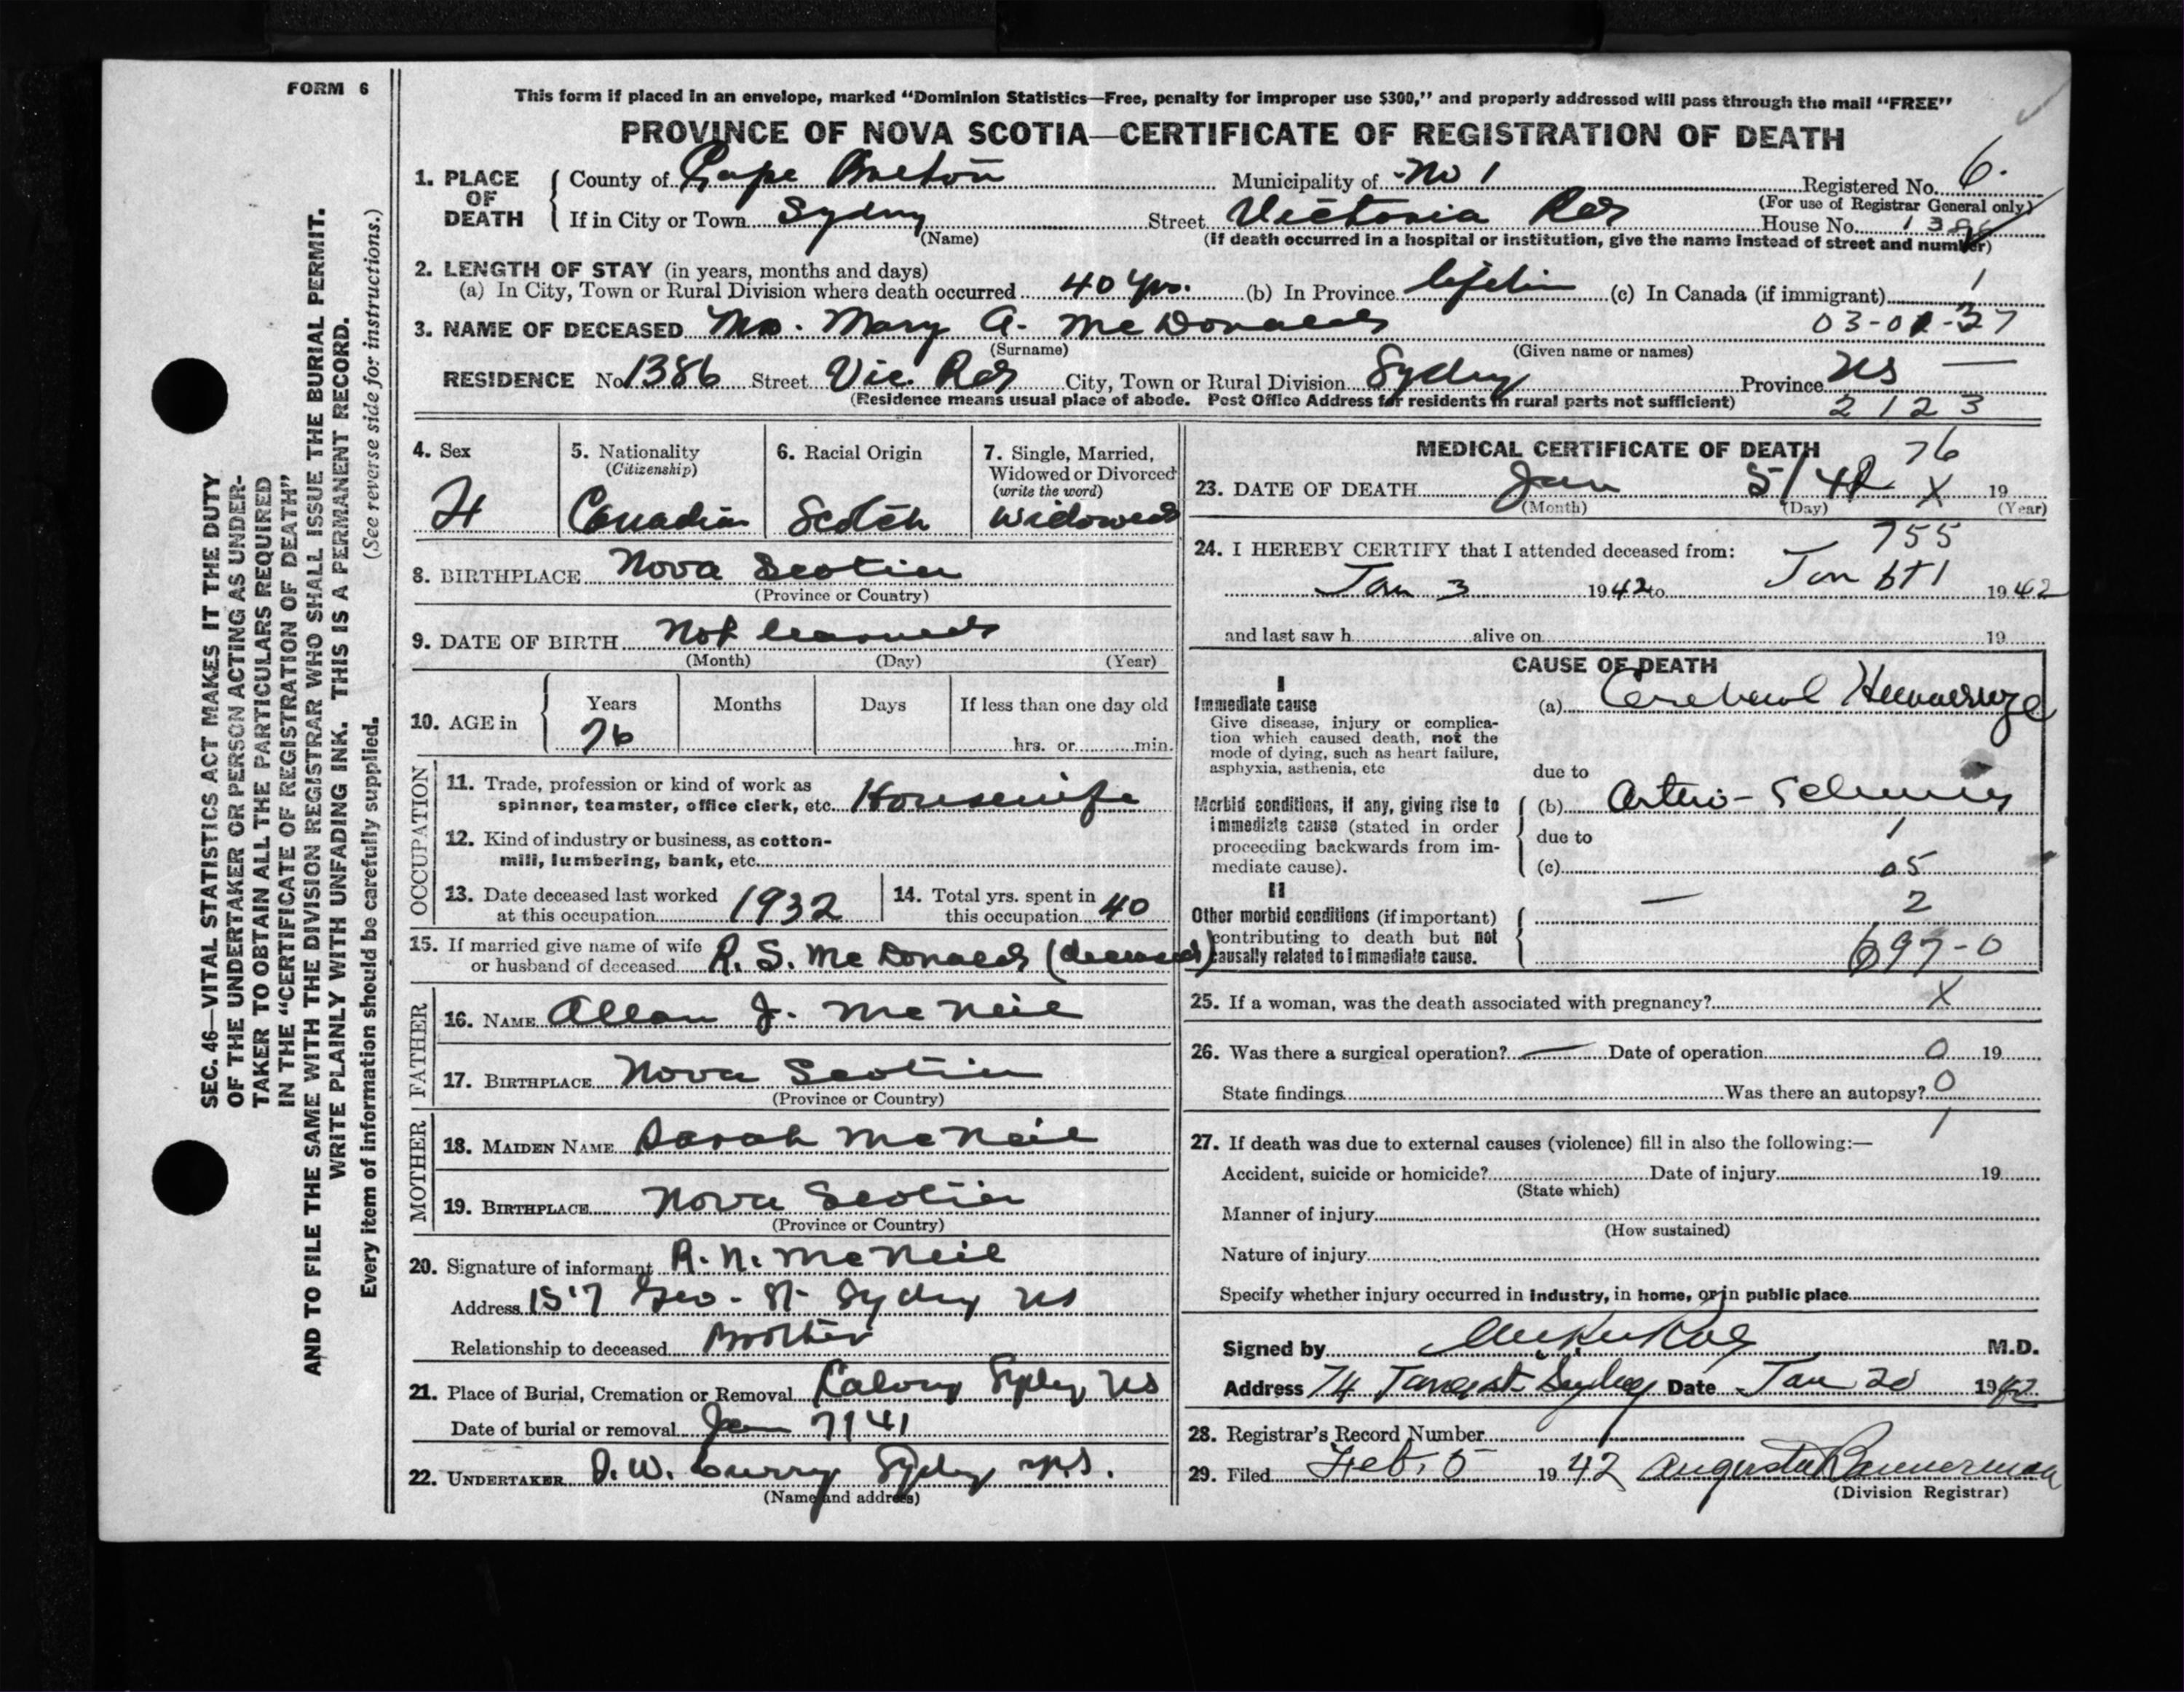 FORM 6
This form if placed in an envelope, marked “Dominion Statistics—Free, penalty for improper use $300,” and properly addressed will pass through the mail “FREE”
PROVINCE OF NOVA SCOTIA—CERTIFICATE OF REGISTRATION OF DEATH
1. PLACE OF DEATH { County of Cape Breton Municipality of No 1 Registered No. 6.
(For use of Registrar General only)
If in City or Town Sydney Street Victoria Rd House No. 1386
(Name) (If death occurred in a hospital or institution, give the name instead of street and number)
2. LENGTH OF STAY (in years, months and days)
(a) In City, Town or Rural Division where death occurred 40 yrs. (b) In Province (c) In Canada (if immigrant) 1
3. NAME OF DECEASED Mrs. Mary A. McDonald 03-01-37
(Surname) (Given name or names)
RESIDENCE No. 1386 Street Vic. Rd City, Town or Rural Division Sydney Province NS —
(Residence means usual place of abode. Post Office Address for residents in rural parts not sufficient) 2123
4. Sex F
5. Nationality (Citizenship) Canadian
6. Racial Origin Scotch
7. Single, Married, Widowed or Divorced (write the word) Widowed
8. BIRTHPLACE Nova Scotia
(Province or Country)
9. DATE OF BIRTH Not learned
(Month) (Day) (Year)
10. AGE in { Years Months Days If less than one day old
76 hrs. or min.
OCCUPATION
11. Trade, profession or kind of work as
spinner, teamster, office clerk, etc. Housewife
12. Kind of industry or business, as cotton-
mill, lumbering, bank, etc.
13. Date deceased last worked
at this occupation 1932
14. Total yrs. spent in
this occupation 40
15. If married give name of wife
or husband of deceased R. S. McDonald (deceased)
FATHER
16. NAME Allan J. McNeil
17. BIRTHPLACE Nova Scotia
(Province or Country)
MOTHER
18. MAIDEN NAME Sarah McNeil
19. BIRTHPLACE Nova Scotia
(Province or Country)
20. Signature of informant R. N. McNeil
Address Geo - St Sydney NS
Relationship to deceased Brother
21. Place of Burial, Cremation or Removal Sydney NS
Date of burial or removal Jan 7/41
22. UNDERTAKER Curry Sydney N.S.
(Name and address)
MEDICAL CERTIFICATE OF DEATH
76
23. DATE OF DEATH Jan 5/42 X 19
(Month) (Day) (Year)
755
24. I HEREBY CERTIFY that I attended deceased from:
Jan 3 1942 to Jan 1942
and last saw h alive on 19
CAUSE OF DEATH
I
Immediate cause
Give disease, injury or complica-
tion which caused death, not the
mode of dying, such as heart failure,
asphyxia, asthenia, etc
(a) Cerebral Hemorrhage
due to
Morbid conditions, if any, giving rise to
immediate cause (stated in order
proceeding backwards from im-
mediate cause).
(b) Arterio-Sclerosis
due to 1
(c) 05
II
Other morbid conditions (if important)
contributing to death but not
causally related to immediate cause.
— 2
697-0
25. If a woman, was the death associated with pregnancy? X
26. Was there a surgical operation? — Date of operation 0 19
State findings Was there an autopsy? 0
1
27. If death was due to external causes (violence) fill in also the following:—
Accident, suicide or homicide? Date of injury 19
(State which)
Manner of injury
(How sustained)
Nature of injury
Specify whether injury occurred in industry, in home, or in public place
Signed by M.D.
Address 74 Sydney Date Jan 20 1942
28. Registrar’s Record Number
29. Filed Feb. 5 1942 Augusta Bannerman
(Division Registrar)
SEC. 46—VITAL STATISTICS ACT MAKES IT THE DUTY
OF THE UNDERTAKER OR PERSON ACTING AS UNDER-
TAKER TO OBTAIN ALL THE PARTICULARS REQUIRED
IN THE “CERTIFICATE OF REGISTRATION OF DEATH”
AND TO FILE THE SAME WITH THE DIVISION REGISTRAR WHO SHALL ISSUE THE BURIAL PERMIT.
WRITE PLAINLY WITH UNFADING INK. THIS IS A PERMANENT RECORD.
Every item of information should be carefully supplied. (See reverse side for instructions.)